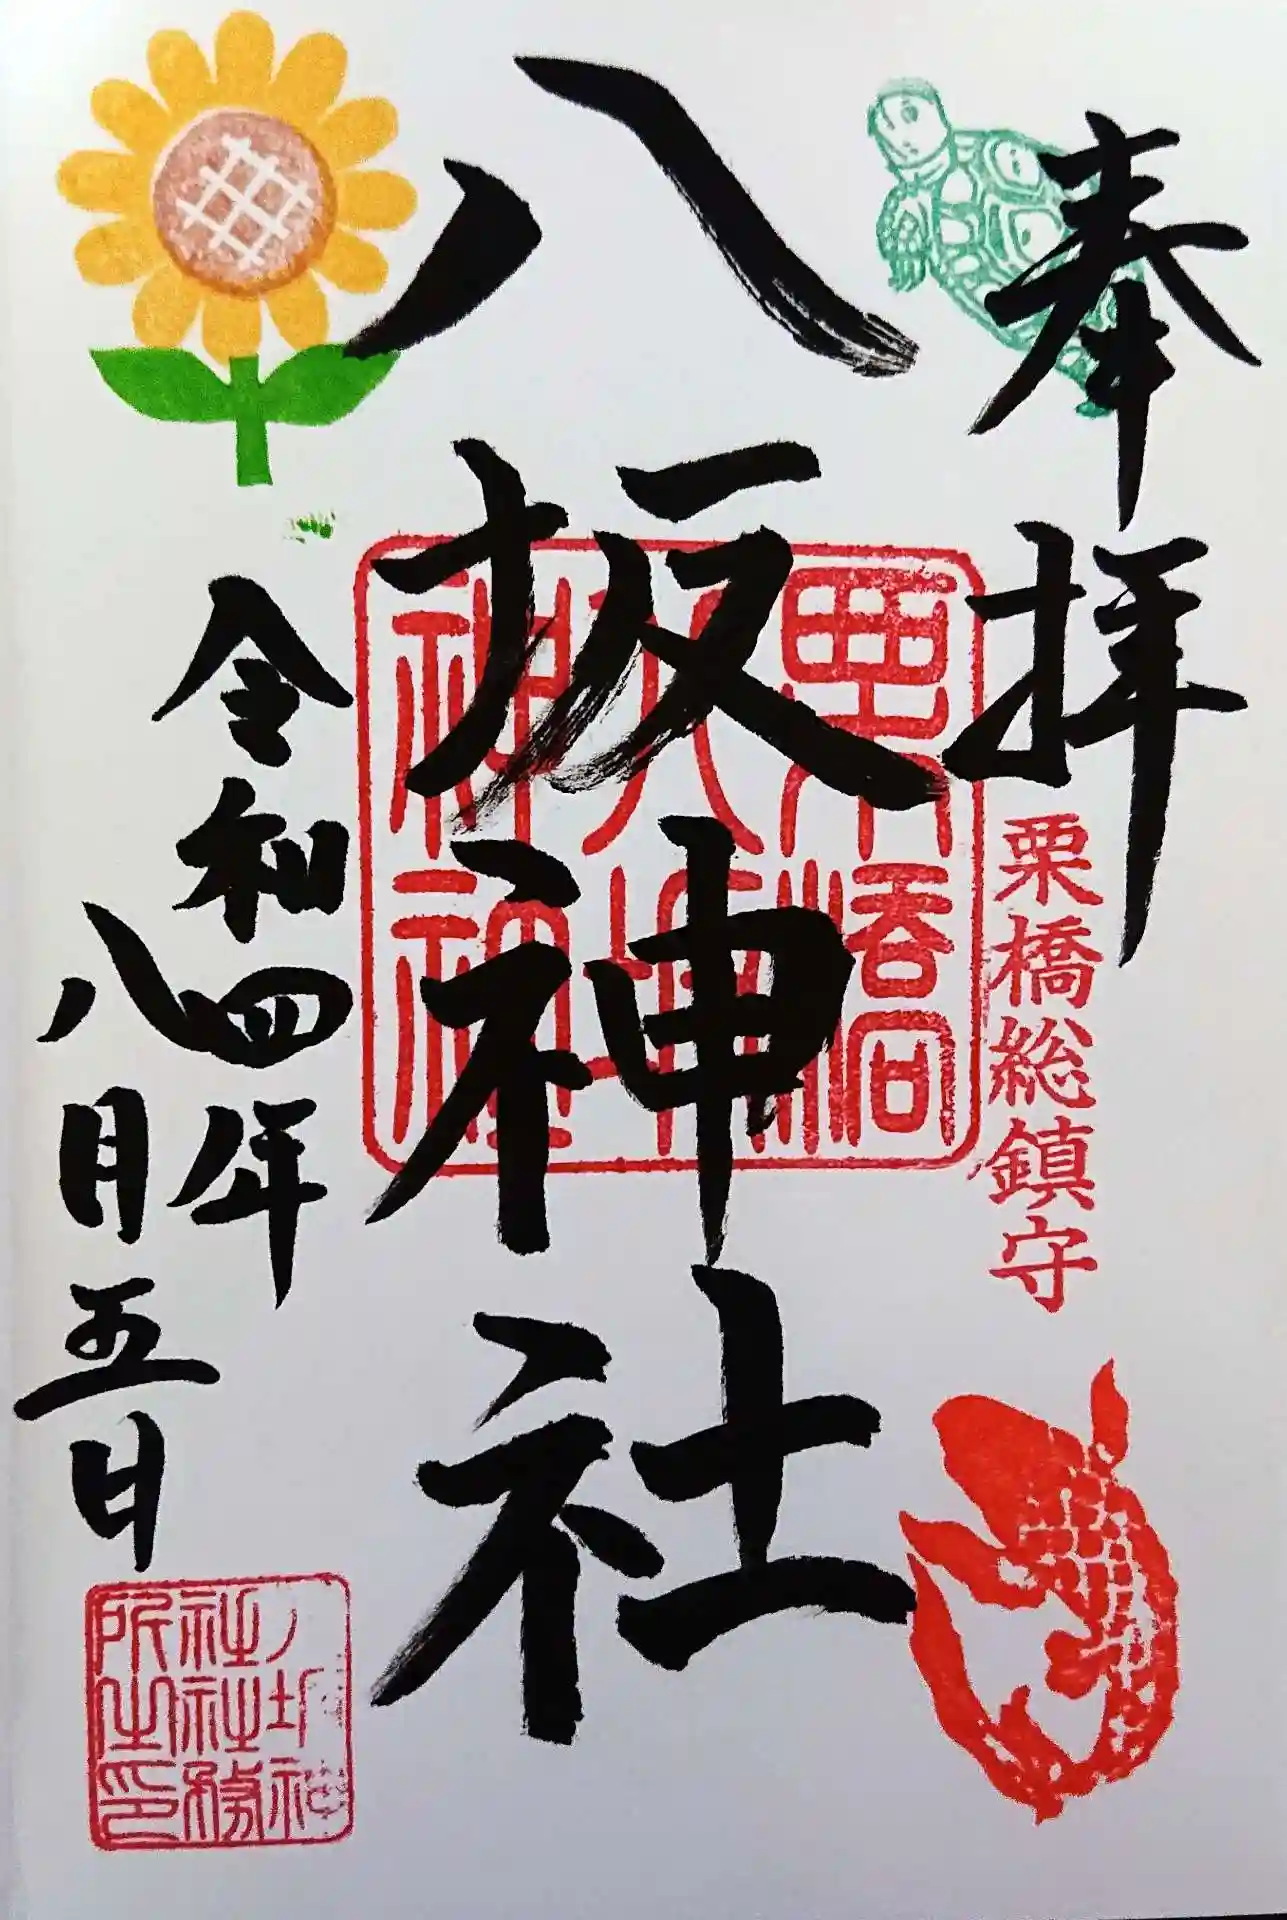 奉拝
栗橋総鎮守
八坂神社
栗橋
八坂
神社
令和四年
八月五日
八坂神
社社務
所之印